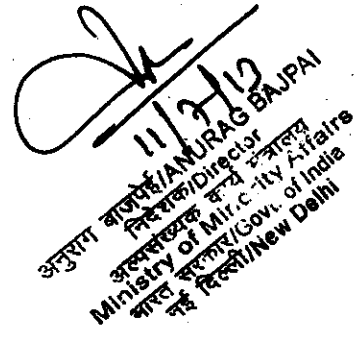 11/7/17
अनुराग बाजपेई/ANURAG BAJPAI
निदेशक/Director
अल्पसंख्यक कार्य मंत्रालय
Ministry of Minority Affairs
भारत सरकार/Govt. of India
नई दिल्ली/New Delhi